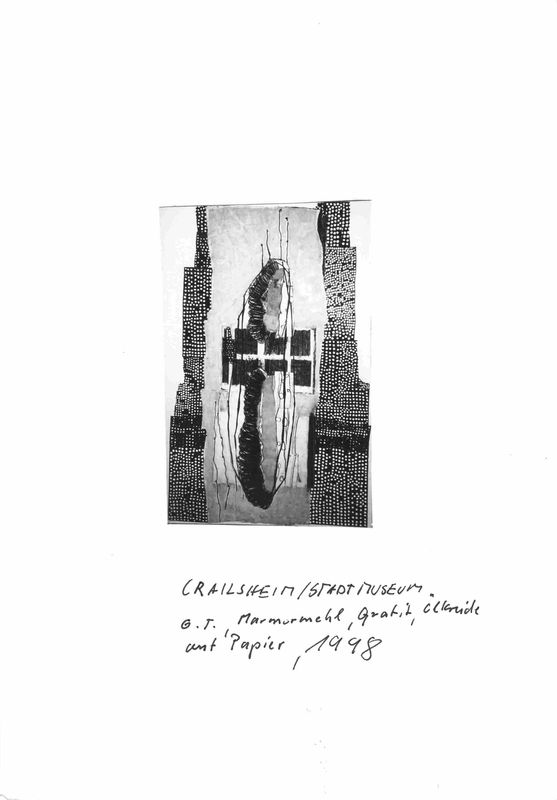 CRAILSHEIM/STADTMUSEUM
O.T., Marmormehl, Grafit, Ölkreide
auf Papier, 1998